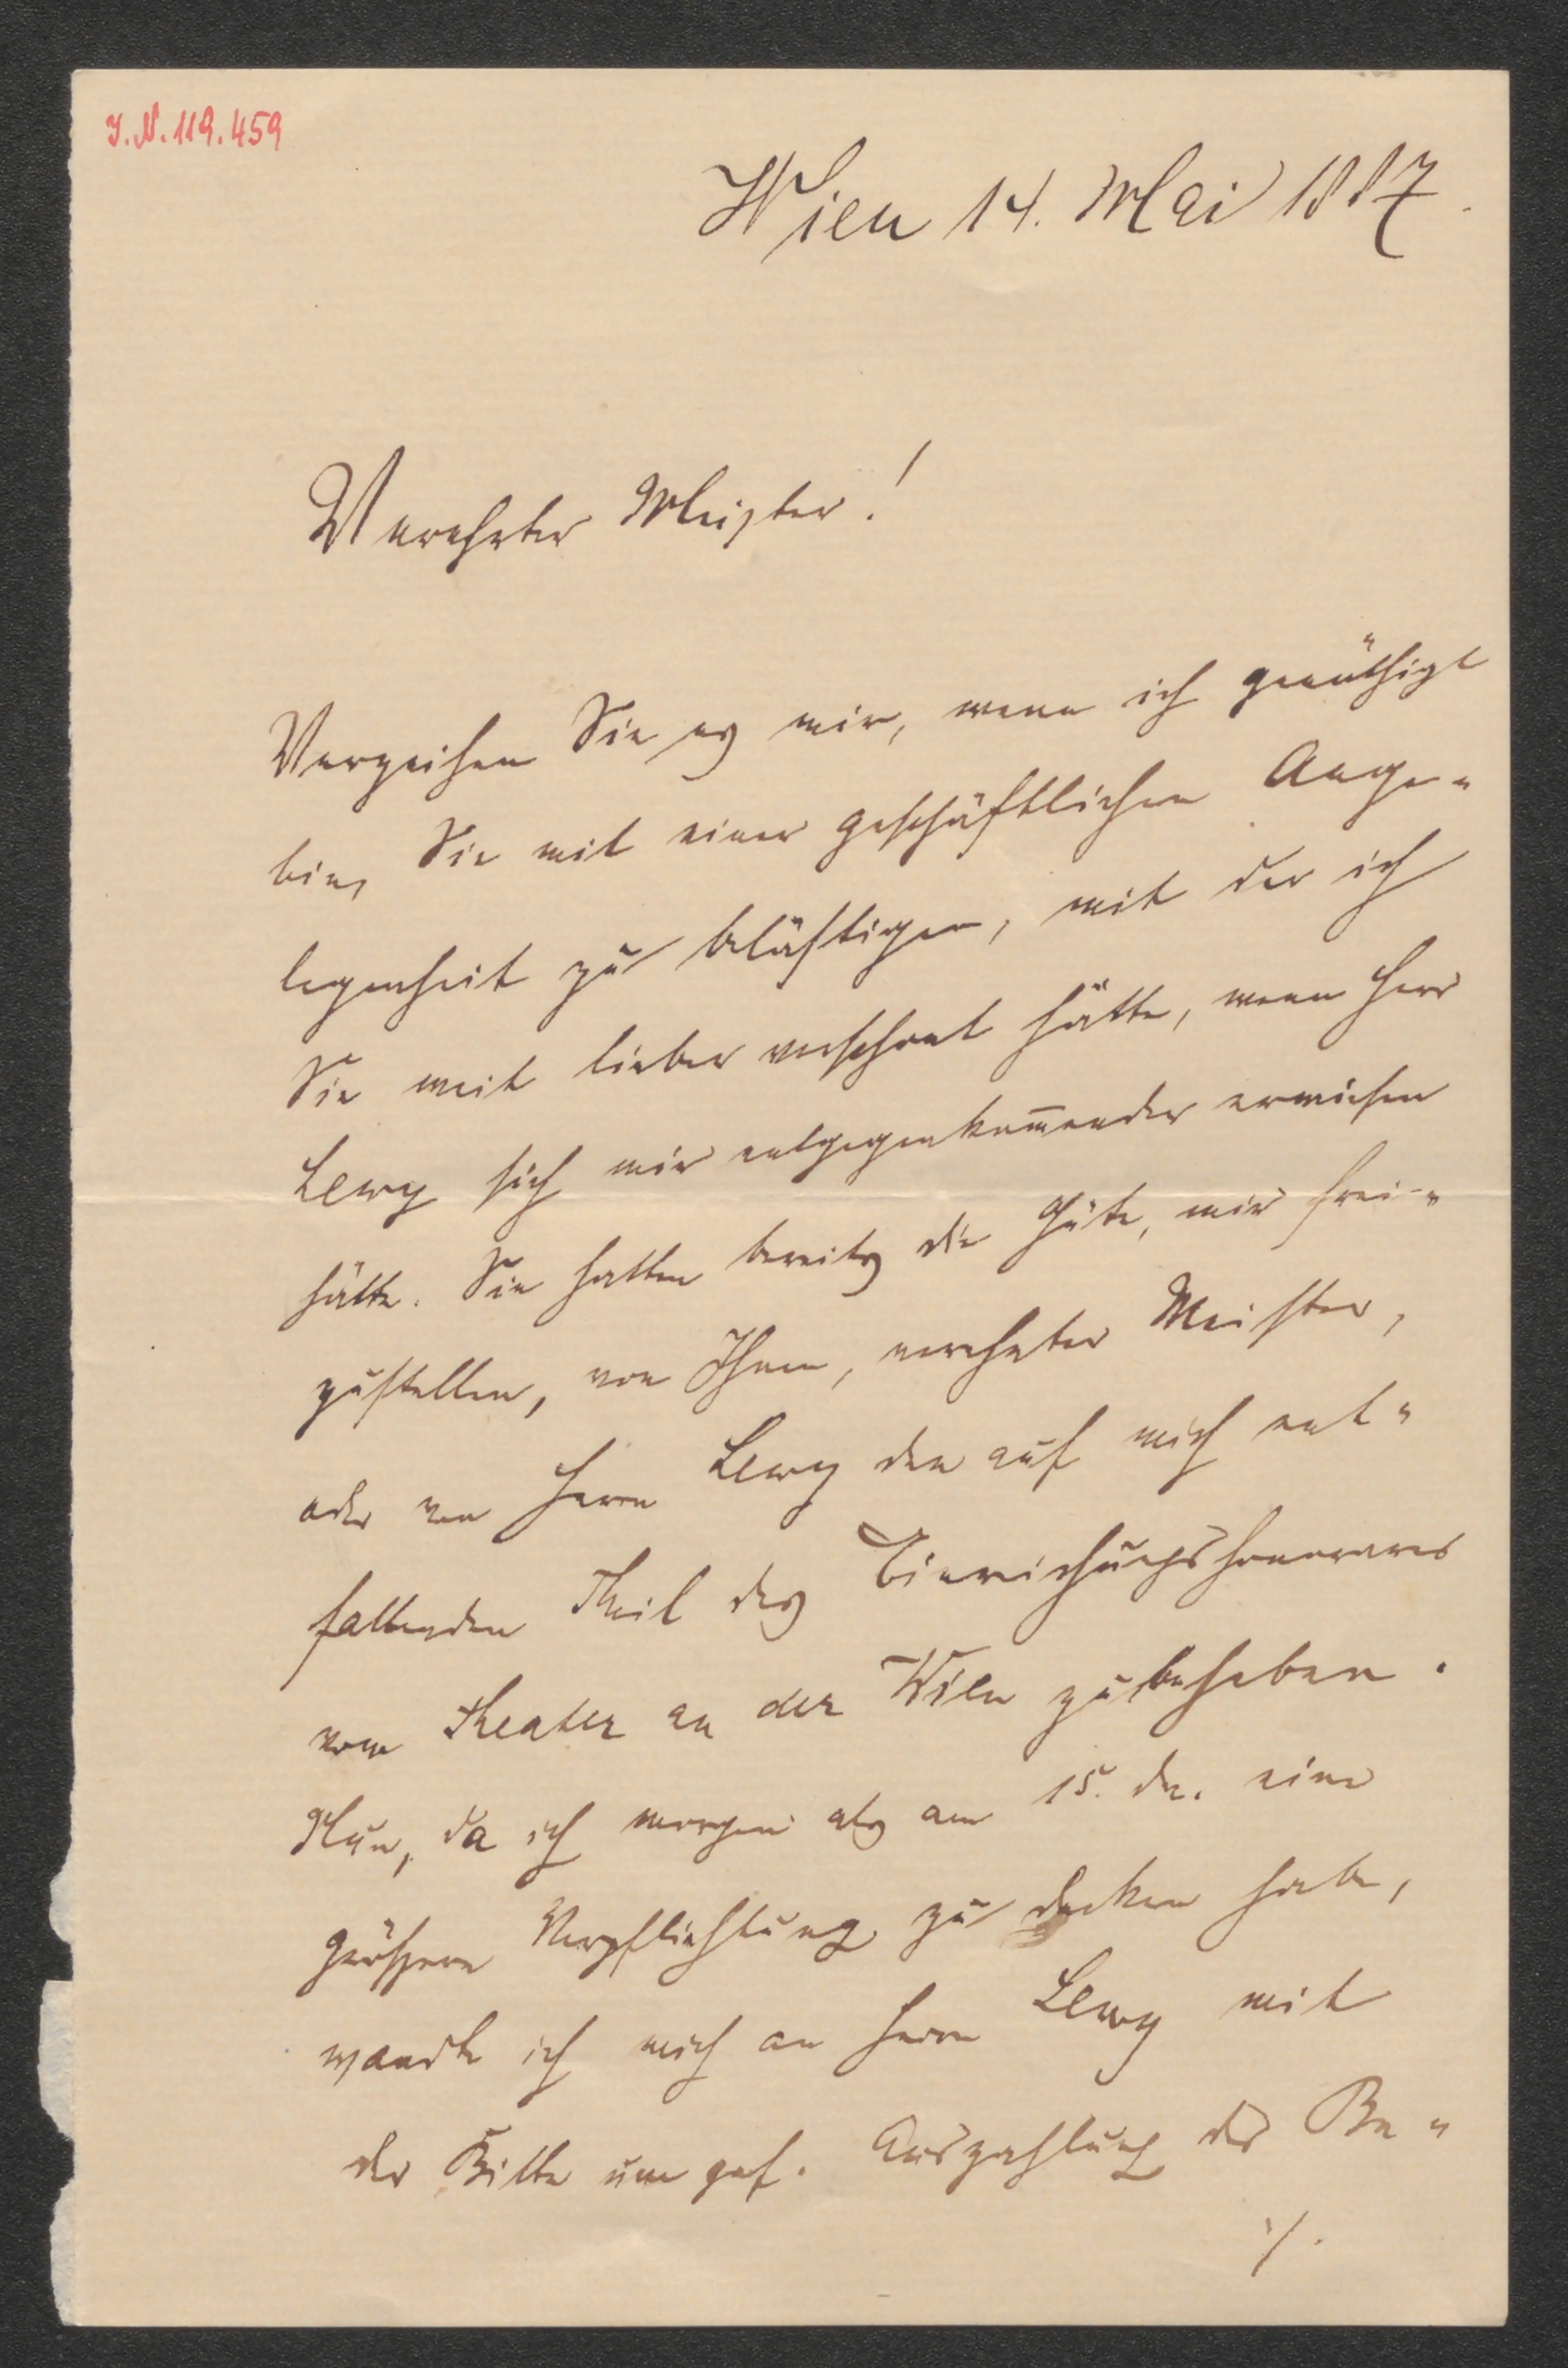 I.N. 119.459
Wien 14. Mai 1887.
Verehrter Meister!
Verzeihen Sie es mir, wenn ich genöthigt
bin, Sie mit einer geschäftlichen Ange-
legenheit zu belästigen, mit der ich
Sie weit lieber verschont hätte, wenn Herr
Lewy sich mir entgegenkom̄ender erwiesen
hätte. Sie hatten bereits die Güte, mir frei-
zustellen, von Ihnen, verehrter Meister,
oder von Herrn Lewy den auf mich ent-
fallenden Theil des Einreichungshonorares
vom Theater an der Wien zu beheben.
Nun, da ich morgen als am 15. ds. eine
größere Verpflichtung zu decken habe,
wandte ich mich an Herrn Lewy mit
der Bitte um gef. Auszahlung des Be-
./.